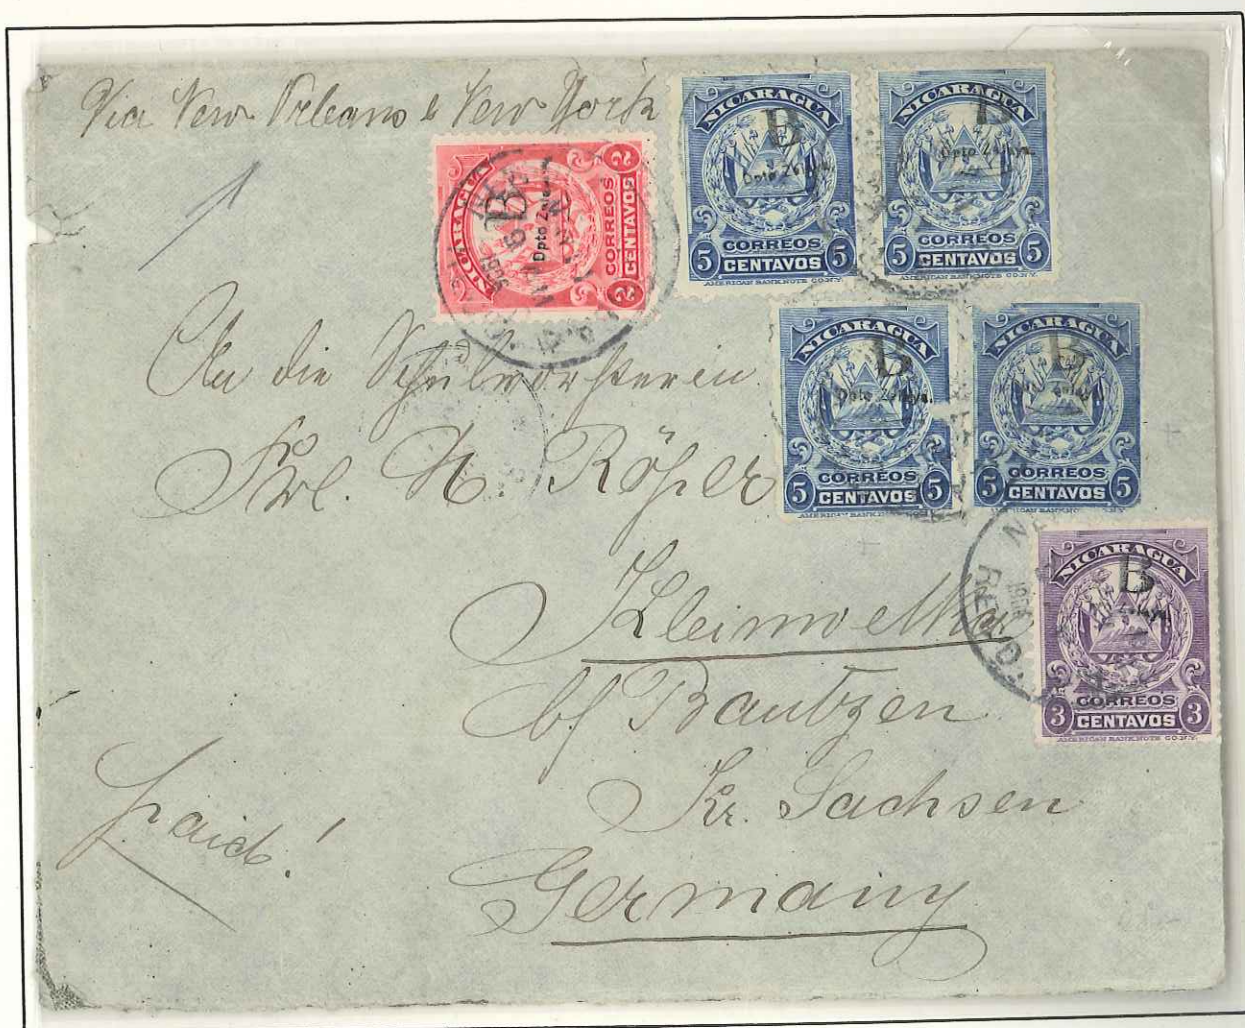 Via New Orleans & New York
1
NICARAGUA
B
Dpto Zelaya
CORREOS
2 CENTAVOS 2
NICARAGUA
B
Dpto Zelaya
5 CORREOS 5
CENTAVOS
AMERICAN BANKNOTE CO. N.Y.
NICARAGUA
B
Dpto Zelaya
5 CORREOS 5
CENTAVOS
AMERICAN BANKNOTE CO. N.Y.
NICARAGUA
B
Dpto Zelaya.
5 CORREOS 5
CENTAVOS
NICARAGUA
B
5 CORREOS 5
CENTAVOS
NICARAGUA
B
3 CORREOS 3
CENTAVOS
AMERICAN BANKNOTE CO. N.Y.
An die Schulvorsteherin
Frl. H. Röper
Kleinwelka
b/ Bautzen
Kr. Sachsen
Germany
paid!